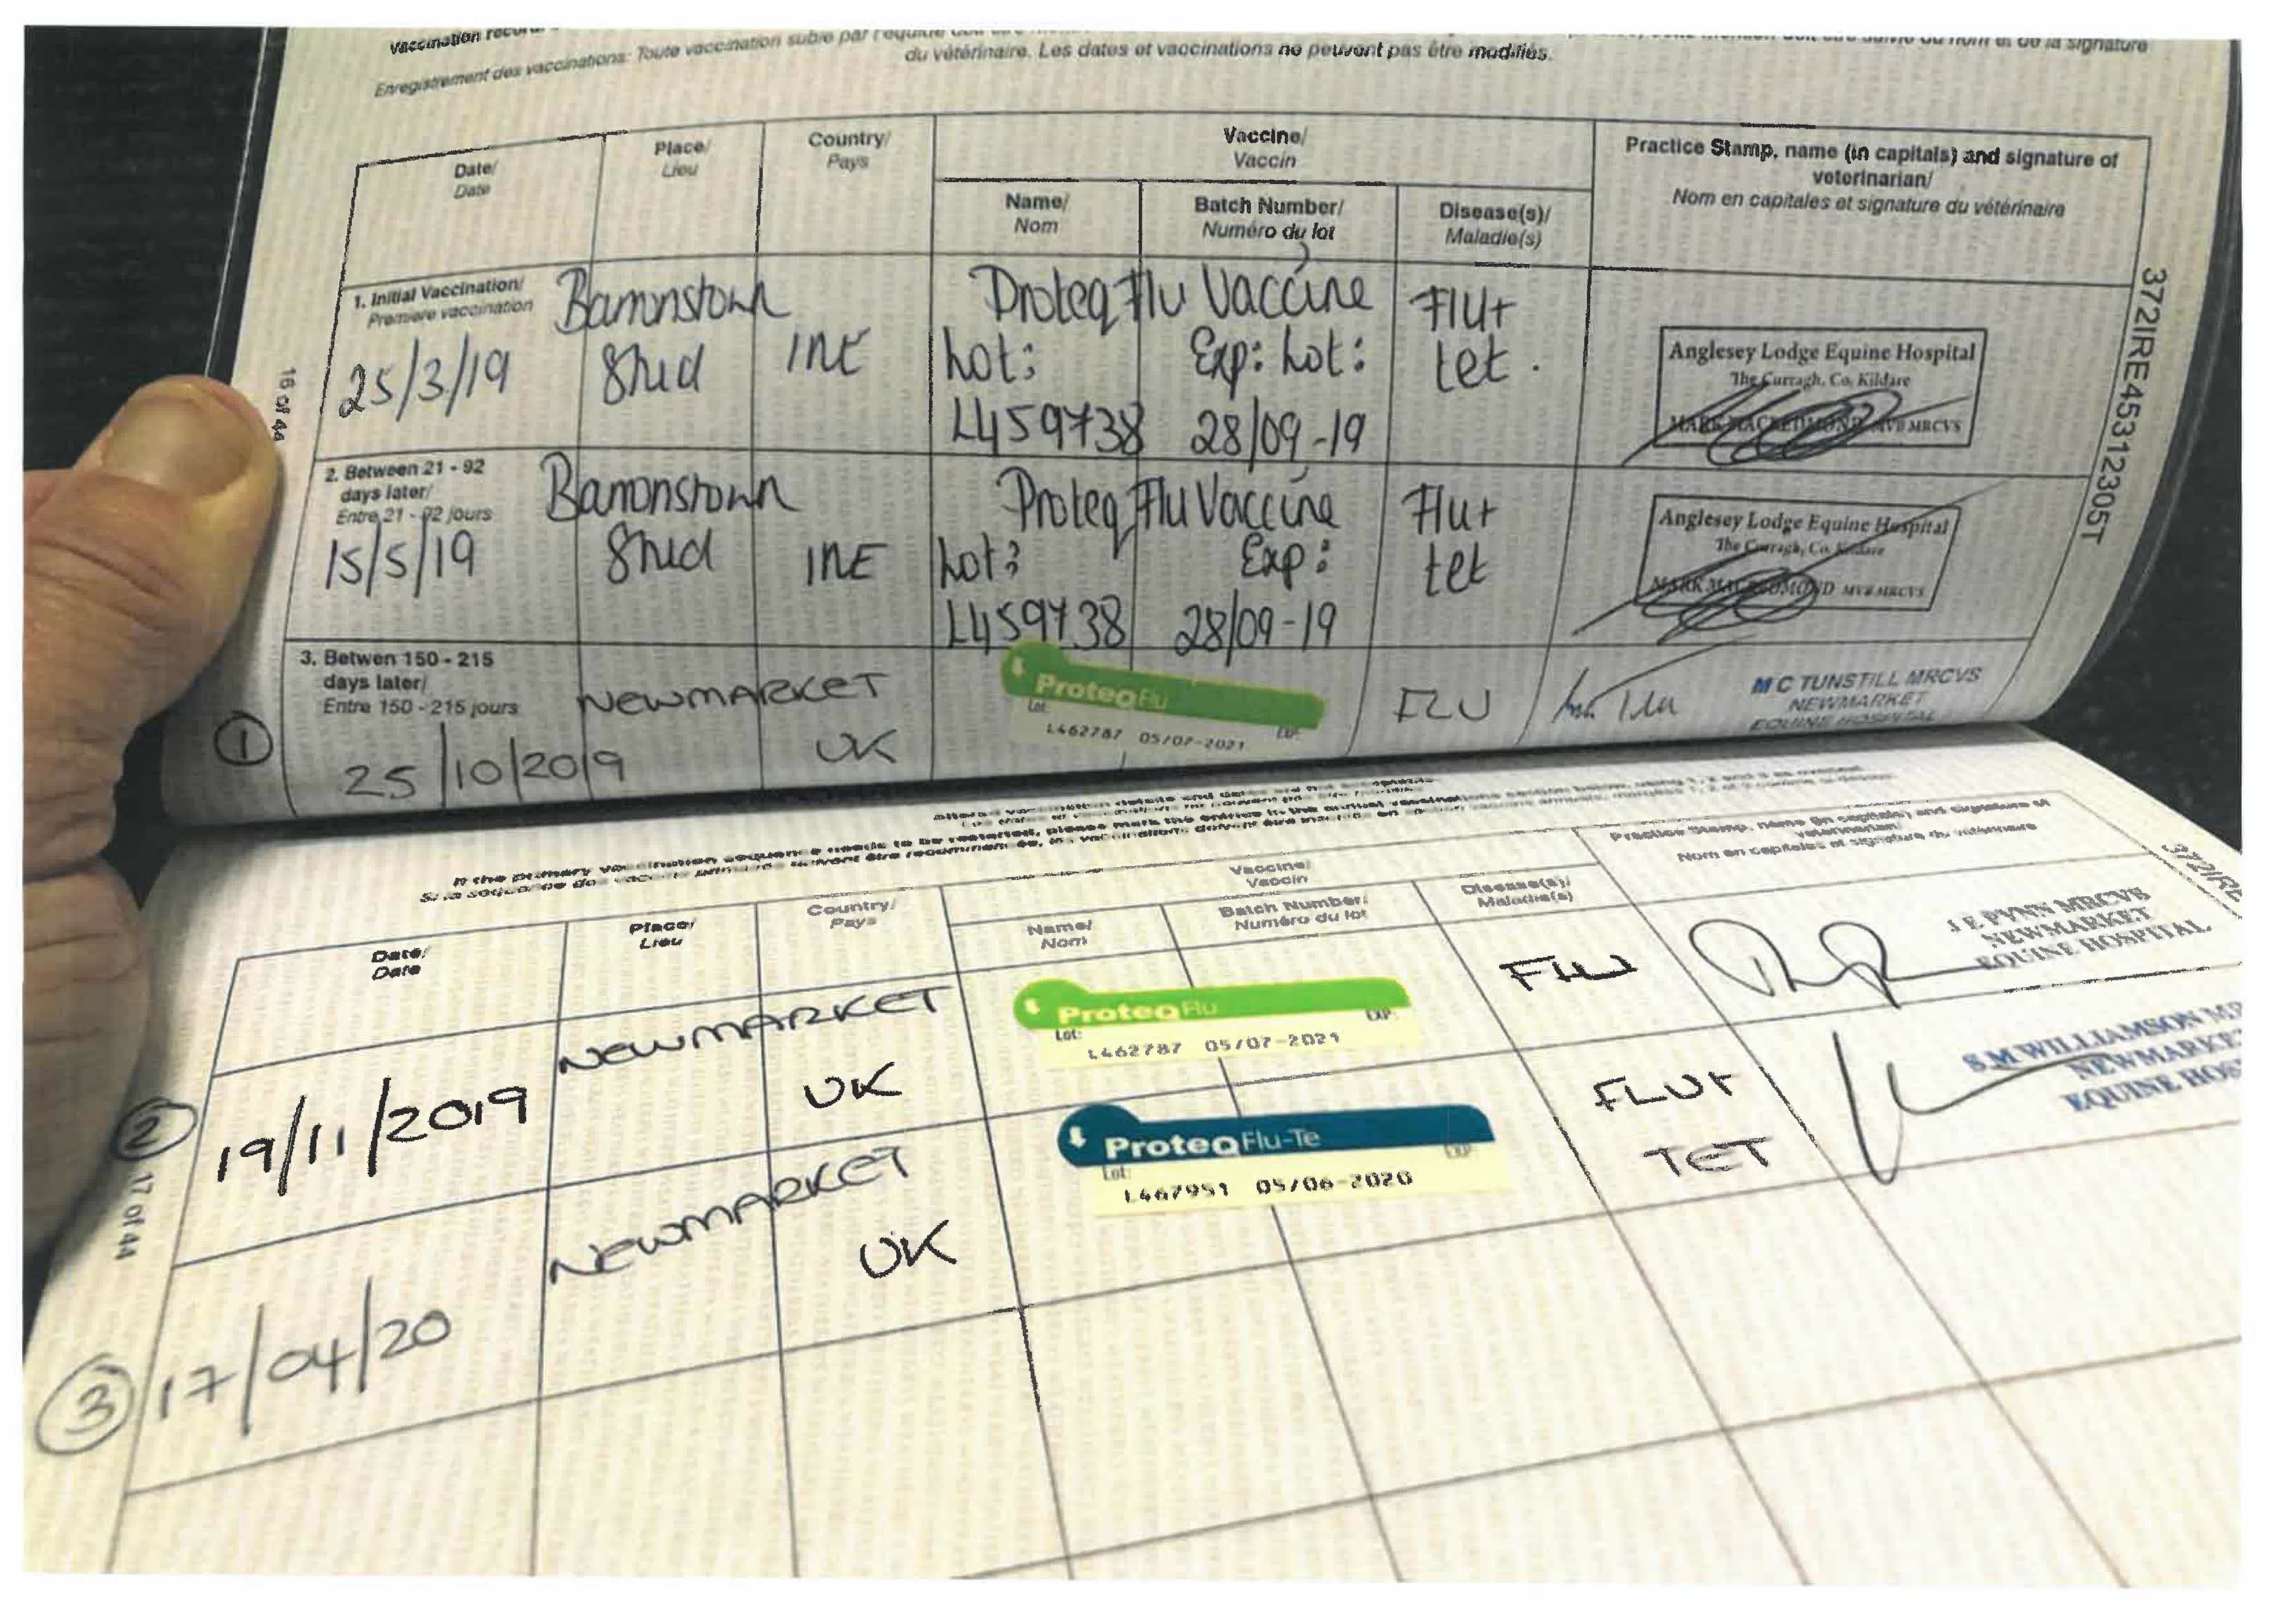 Vaccination
Enregistrement des vaccinations: Toute vaccination subie par l'équidé
et de la signature
du vétérinaire. Les dates et vaccinations ne peuvent pas être modifiés.
Date/
Date
Place/
Lieu
Country/
Pays
Vaccine/
Vaccin
Name/
Nom
Batch Number/
Numéro du lot
Disease(s)/
Maladie(s)
Practice Stamp, name (in capitals) and signature of
veterinarian/
Nom en capitales et signature du vétérinaire
372IRE45312305T
16 of 44
1. Initial Vaccination/
Premiere vaccination
25/3/19
Barronstown
Stud
IRE
Proteq Flu Vaccine
Lot:
Exp: Lot:
L459738
28/09-19
Flu+
tet.
Anglesey Lodge Equine Hospital
The Curragh, Co. Kildare
MARK MACREDMOND MVB MRCVS
2. Between 21 - 92
days later/
Entre 21 - 92 jours
15/5/19
Barronstown
Stud
IRE
Proteq Flu Vaccine
Lot:
Exp:
L459738
28/09-19
Flu+
tet
Anglesey Lodge Equine Hospital
The Curragh, Co. Kildare
MARK MACREDMOND MVB MRCVS
3. Betwen 150 - 215
days later/
Entre 150 - 215 jours
① 25/10/2019
NEWMARKET
UK
ProteqFlu
Lot: EXP:
L462787 05/07-2021
FLU
M C TUNSTILL MRCVS
NEWMARKET
EQUINE HOSPITAL
If the primary vaccination sequence needs to be restarted, please mark the entries in the annual vaccinations section below, using 1, 2 and 3
Date/
Date
Place/
Lieu
Country/
Pays
Vaccine/
Vaccin
Name/
Nom
Batch Number/
Numéro du lot
Disease(s)/
Maladie(s)
Practice Stamp, name (in capitals) and signature of
veterinarian/
Nom en capitales et signature du vétérinaire
372IRE
17 of 44
② 19/11/2019
NEWMARKET
UK
ProteqFlu
Lot: EXP:
L462787 05/07-2021
FLU
J E PYNN MRCVS
NEWMARKET
EQUINE HOSPITAL
③ 17/04/20
NEWMARKET
UK
ProteqFlu-Te
Lot: EXP:
L467951 05/06-2020
FLU+
TET
S.M WILLIAMSON MR
NEWMARKET
EQUINE HOS